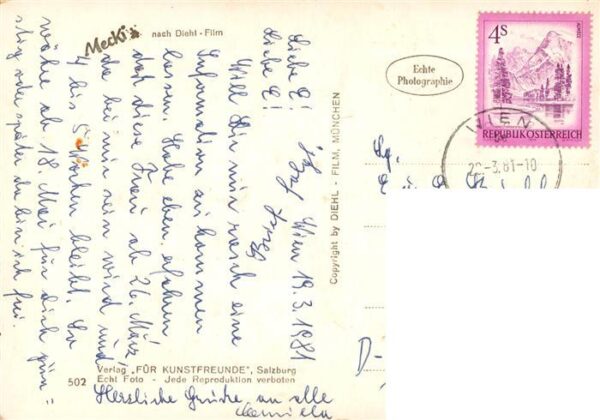 Mecki nach Diehl-Film
Wien 19.3.1981
Liebe E!
Liebe E!
Will Dir nur rasch eine
Information zukommen
lassen. Habe eben erfahren
daß diese Frau ab 26. März
da bei mir sein wird und
4 bis 5 Wochen bleibt. Da
wäre ab 18. Mai für dich gün=
stig oder später da bin ich frei.
Herzliche Grüße an alle
Copyright by DIEHL - FILM, MÜNCHEN
Verlag „FÜR KUNSTFREUNDE", Salzburg
502 Echt Foto - Jede Reproduktion verboten
Echte
Photographie
4S
REPUBLIK ÖSTERREICH
WIEN
-3.81-10
D-